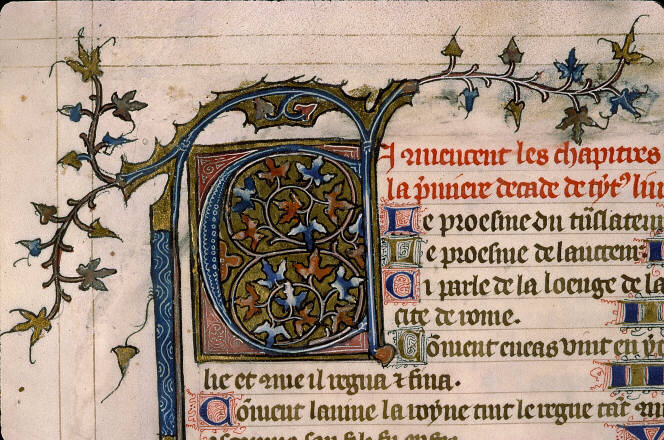 Ci commencent les chapitres
la p̄miere decade de tyt⁹ liu
Le proesme du trāslateur
Le proesme de laucteur
Ci parle de la loenge de la
cite de rome.
Cōment eneas vint en
lie et 9me il regna & fina.
Cōment lauine la royne tint le regne